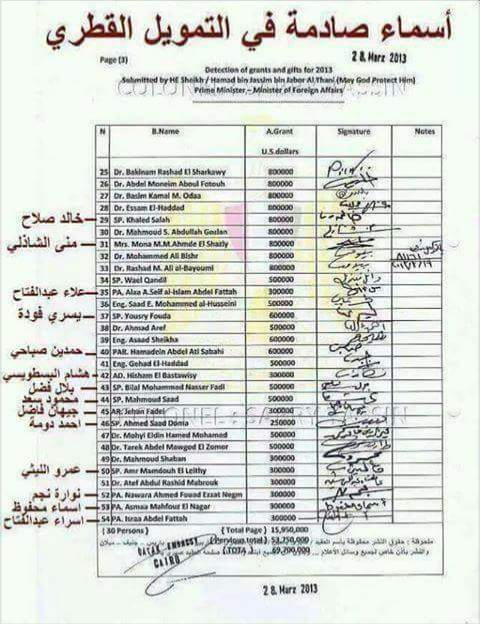 أسماء صادمة في التمويل القطري
28. Marz 2013
Page (3)
Detection of grants and gifts for 2013
Submitted by HE Sheikh / Hamad bin Jassim bin Jabor Al Thani (May God Protect Him)
Prime Minister – Minister of Foreign Affairs
N B.Name A.Grant Signature Notes
U.S.dollars
25 Dr. Bakinam Rashad El Sharkawy 800000
26 Dr. Abdel Moneim Aboul Fotouh 800000
27 Dr. Basim Kamal M. Odaa 800000
28 Dr. Essam El-Haddad 800000
خالد صلاح 29 SP. Khaled Salah 800000
30 Dr. Mahmoud S. Abdullah Gozlan 800000
منى الشاذلي 31 Mrs. Mona M.M.Ahmde El Shazly 800000
32 Dr. Mohammed Ali Bishr 800000
33 Dr. Rashad M. Ali al-Bayoumi 800000
34 SP. Wael Qandil 500000
علاء عبدالفتاح 35 PA. Alaa A.Seif al-Islam Abdel Fattah 300000
36 Eng. Saad E. Mohammed al-Husseini 500000
يسري فودة 37 SP. Yousry Fouda 600000
38 Dr. Ahmad Aref 500000
39 Eng. Asaad Sheikha 600000
حمدين صباحي 40 PAR. Hamadein Abdel Ati Sabahi 600000
41 Eng. Gehad El-Haddad 500000
هشام البسطويسي 42 AD. Hisham El Bastawisy 300000
بلال فضل 43 SP. Bilal Mohammed Nasser Fadl 500000
محمود سعد 44 SP. Mahmoud Saad 500000
جيهان فاضل 45 AR. Jehan Fadel 300000
احمد دومة 46 SP. Ahmed Saad Domia 250000
47 Dr. Mohy Eldin Hamed Mohamed 500000
48 Dr. Tarek Abdel Mawgod El Zomor 500000
49 Dr. Mahmoud Shaban 300000
عمرو الليثي 50 SP. Amr Mamdouh El Leithy 300000
51 Dr. Atef Abdul Rashid Mabrouk 300000
نوارة نجم 52 PA. Nawara Ahmed Fouad Ezzat Negm 300000
اسماء محفوظ 53 PA. Asmaa Mahfouz El Nagar 300000
اسراء عبدالفتاح 54 PA. Israa Abdel Fattah 300000
(30 Persons) (Total Page) 15,950,000
(Pervious total) 53,750,000
(TOTAL) 69,700,000
QATAR EMBASSY
CAIRO
28. Marz 2013